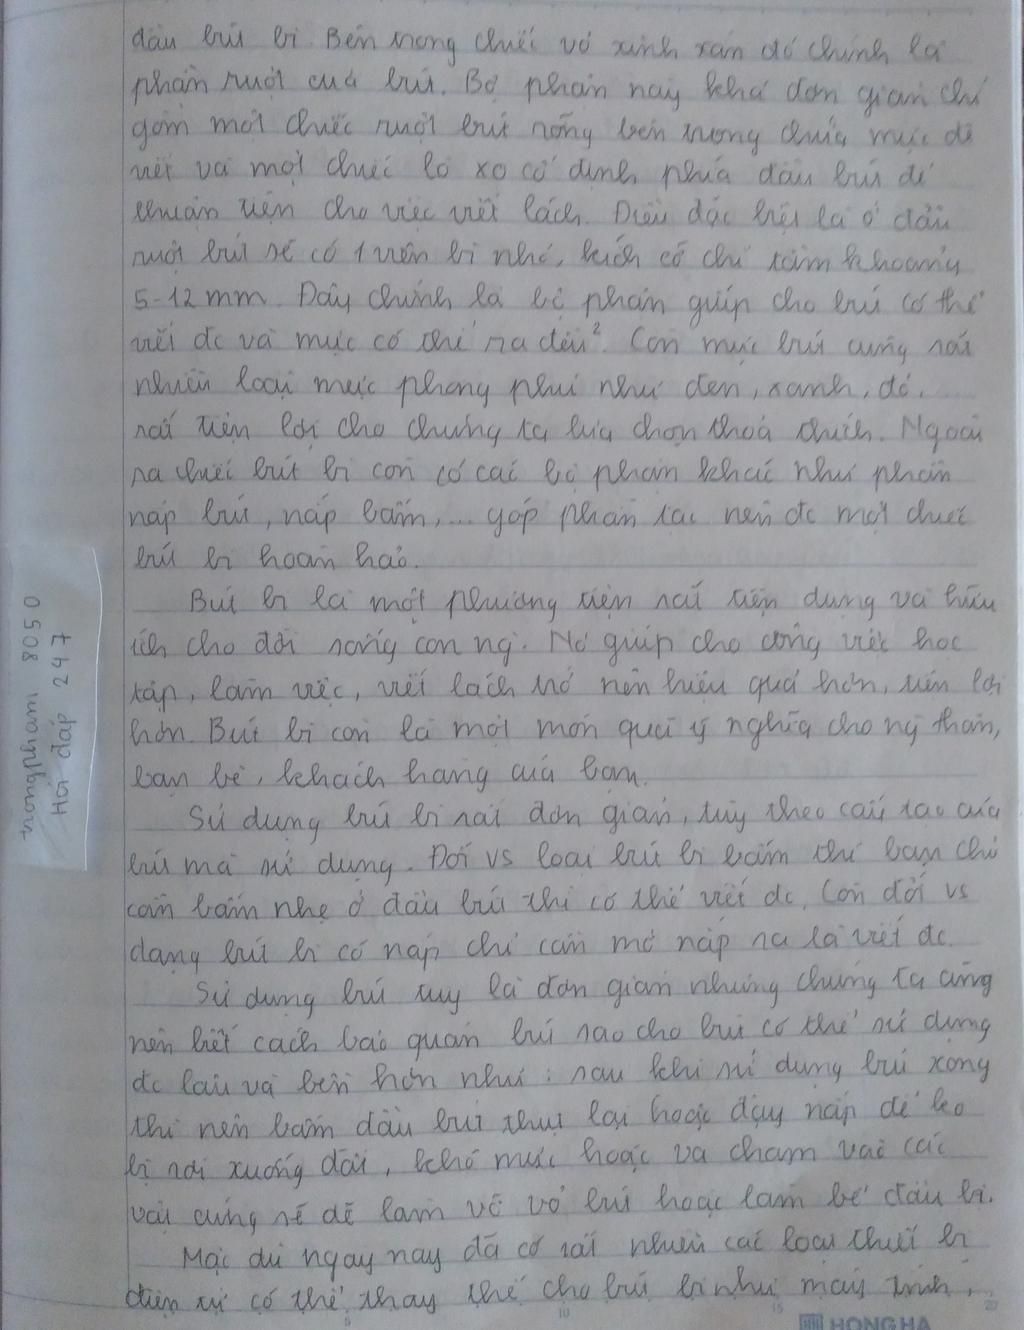 đầu bút bi. Bên trong chiếc vỏ xinh xắn đó chính là
phần ruột của bút. Bộ phận này khá đơn giản chỉ
gồm một chiếc ruột bút rỗng bên trong chứa mực để
viết và một chiếc lò xo cố định phía đầu bút để
thuận tiện cho việc viết lách. Điều đặc biệt là ở đầu
ruột bút sẽ có 1 viên bi nhỏ, kích cỡ chỉ tầm khoảng
5-12 mm. Đây chính là bộ phận giúp cho bút có thể
viết đc và mực có thể ra đều². Còn mực bút cũng rất
nhiều loại mực phong phú như đen, xanh, đỏ,
rất tiện lợi cho chúng ta lựa chọn thoả thích. Ngoài
ra chiếc bút bi còn có các bộ phận khác như phần
nắp bút, nắp bấm,... góp phần tạo nên đc một chiếc
bút bi hoàn hảo.
Bút bi là một phương tiện rất tiện dụng và hữu
ích cho đời sống con ng. Nó giúp cho công việc học
tập, làm việc, viết lách trở nên hiệu quả hơn, tiện lợi
hơn. Bút bi còn là một món quà ý nghĩa cho ng thân,
bạn bè, khách hàng của bạn.
Sử dụng bút bi rất đơn giản, tùy theo cấu tạo của
bút mà sử dụng. Đối vs loại bút bi bấm thì bạn chỉ
cần bấm nhẹ ở đầu bút thì có thể viết đc. Còn đối vs
dạng bút bi có nắp chỉ cần mở nắp ra là viết đc
Sử dụng bút tuy là đơn giản nhưng chúng ta cũng
nên biết cách bảo quản bút sao cho bút có thể sử dụng
đc lâu và bền hơn như: sau khi sử dụng bút xong
thì nên bấm đầu bút thụt lại hoặc đậy nắp để ko
bị rơi xuống đất, khô mực hoặc va chạm vào các
vật cứng sẽ dễ làm vỡ vỏ bút hoặc làm bể đầu bi.
Mặc dù ngày nay đã có rất nhiều các loại thiết bị
điện tử có thể thay thế cho bút bi như máy tính,
trongpham 8050
Hỏi đáp 247
5 10 15 20
HONG HA